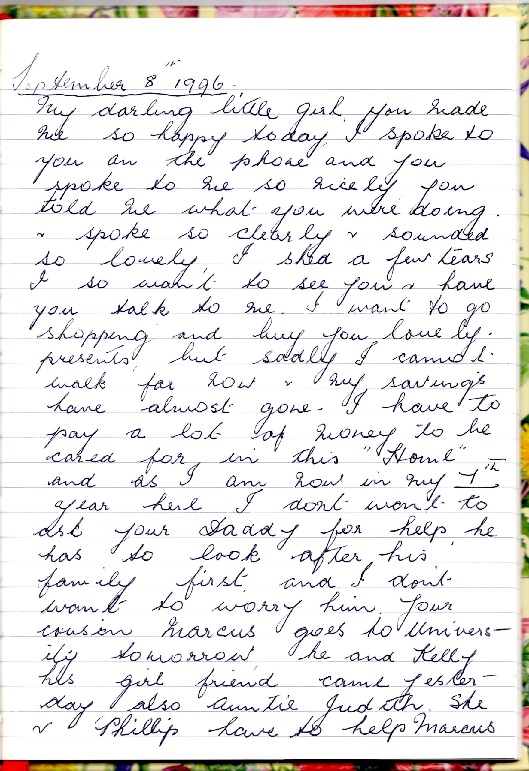 September 8th 1996.
My darling little girl, you made
me so happy today I spoke to
you on the phone and you
spoke to me so nicely you
told me what you were doing.
& spoke so clearly & sounded
so lovely, I shed a few tears
I so want to see you & have
you talk to me. I want to go
shopping and buy you lovely
presents, but sadly I cannot
walk far now & my savings
have almost gone. I have to
pay a lot of money to be
cared for, in this "Home"
and as I am now in my 7th
year here I dont want to
ask your Daddy for help he
has to look after his
family first, and I dont
want to worry him. Your
cousin Marcus goes to Univers-
ity tomorrow he and Kelly
his girl friend came yester-
day also auntie Judith. She
& Phillip have to help Marcus